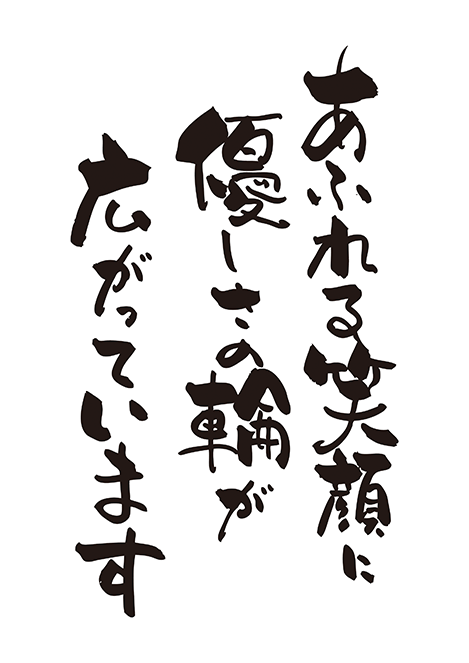 あふれる笑顔に
優しさの輪が
広がっています